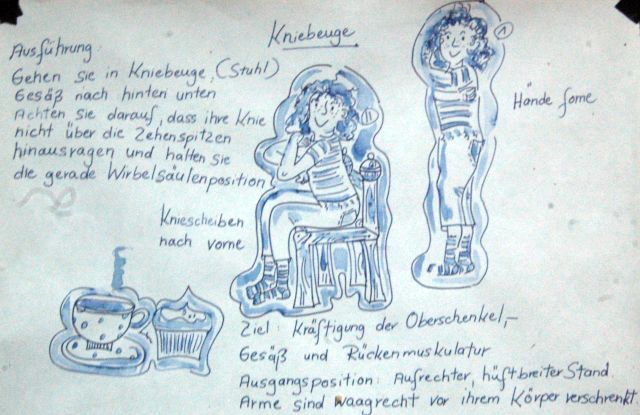 Kniebeuge
Ausführung:
Gehen Sie in Kniebeuge, (Stuhl)
Gesäß nach hinten unten
Achten Sie darauf, dass ihre Knie
nicht über die Zehenspitzen
hinausragen und halten sie
die gerade Wirbelsäulenposition
Kniescheiben
nach vorne
1
1
Hände forne
Ziel: Kräftigung der Oberschenkel,-
Gesäß und Rückenmuskulatur
Ausgangsposition: Aufrechter, hüftbreiter Stand.
Arme sind waagrecht vor ihrem Körper verschrenkt.